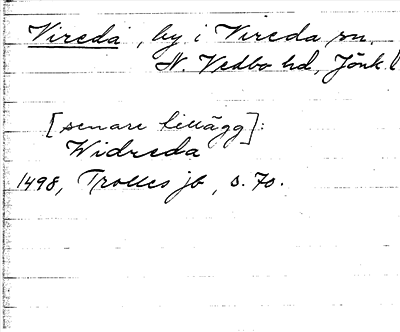 Vireda, by i Vireda sn,
N. Vedbo hd, Jönk. l
[senare tillägg]:
Widreda
1498, Trolles jb, s. 70.